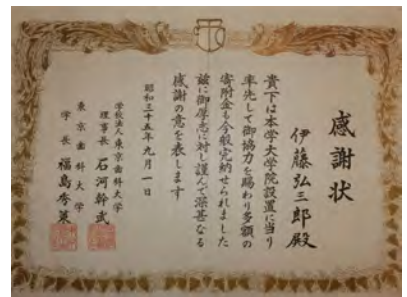 感謝状
伊藤弘三郎殿
貴下は本学大学院設置に当り
率先して御協力を賜わり多額の
寄附金も今般完納せられました
茲に御厚志に対し謹んで深甚なる
感謝の意を表します
昭和三十五年九月一日
学校法人東京歯科大学
理事長 石河幹武
東京歯科大学
学長 福島秀策